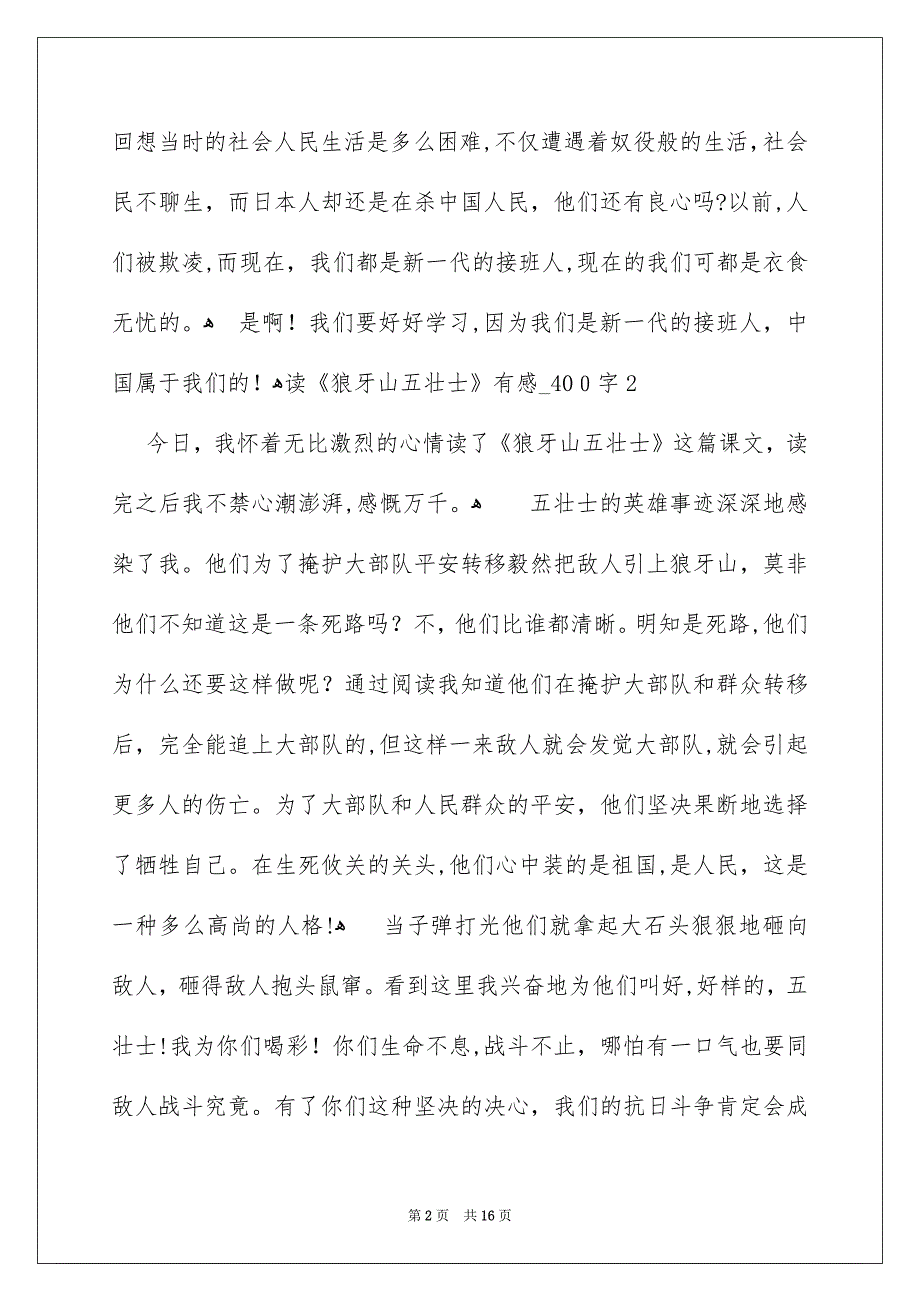 回想当时的社会人民生活是多么困难,不仅遭遇着奴役般的生活,社会
民不聊生，而日本人却还是在杀中国人民，他们还有良心吗?以前,人
们被欺凌,而现在，我们都是新一代的接班人,现在的我们可都是衣食
无忧的。ﻫ　是啊！我们要好好学习,因为我们是新一代的接班人，中
国属于我们的！ﻫ读《狼牙山五壮士》有感_40０字２
今日，我怀着无比激烈的心情读了《狼牙山五壮士》这篇课文，读
完之后我不禁心潮澎湃,感慨万千。ﻫ　　五壮士的英雄事迹深深地感
染了我。他们为了掩护大部队平安转移毅然把敌人引上狼牙山，莫非
他们不知道这是一条死路吗？不，他们比谁都清晰。明知是死路,他们
为什么还要这样做呢？通过阅读我知道他们在掩护大部队和群众转移
后，完全能追上大部队的,但这样一来敌人就会发觉大部队,就会引起
更多人的伤亡。为了大部队和人民群众的平安，他们坚决果断地选择
了牺牲自己。在生死攸关的关头,他们心中装的是祖国,是人民，这是
一种多么高尚的人格!ﻫ　　当子弹打光他们就拿起大石头狠狠地砸向
敌人，砸得敌人抱头鼠窜。看到这里我兴奋地为他们叫好,好样的，五
壮士!我为你们喝彩！你们生命不息,战斗不止，哪怕有一口气也要同
敌人战斗究竟。有了你们这种坚决的决心，我们的抗日斗争肯定会成
第 2 页　共 16 页